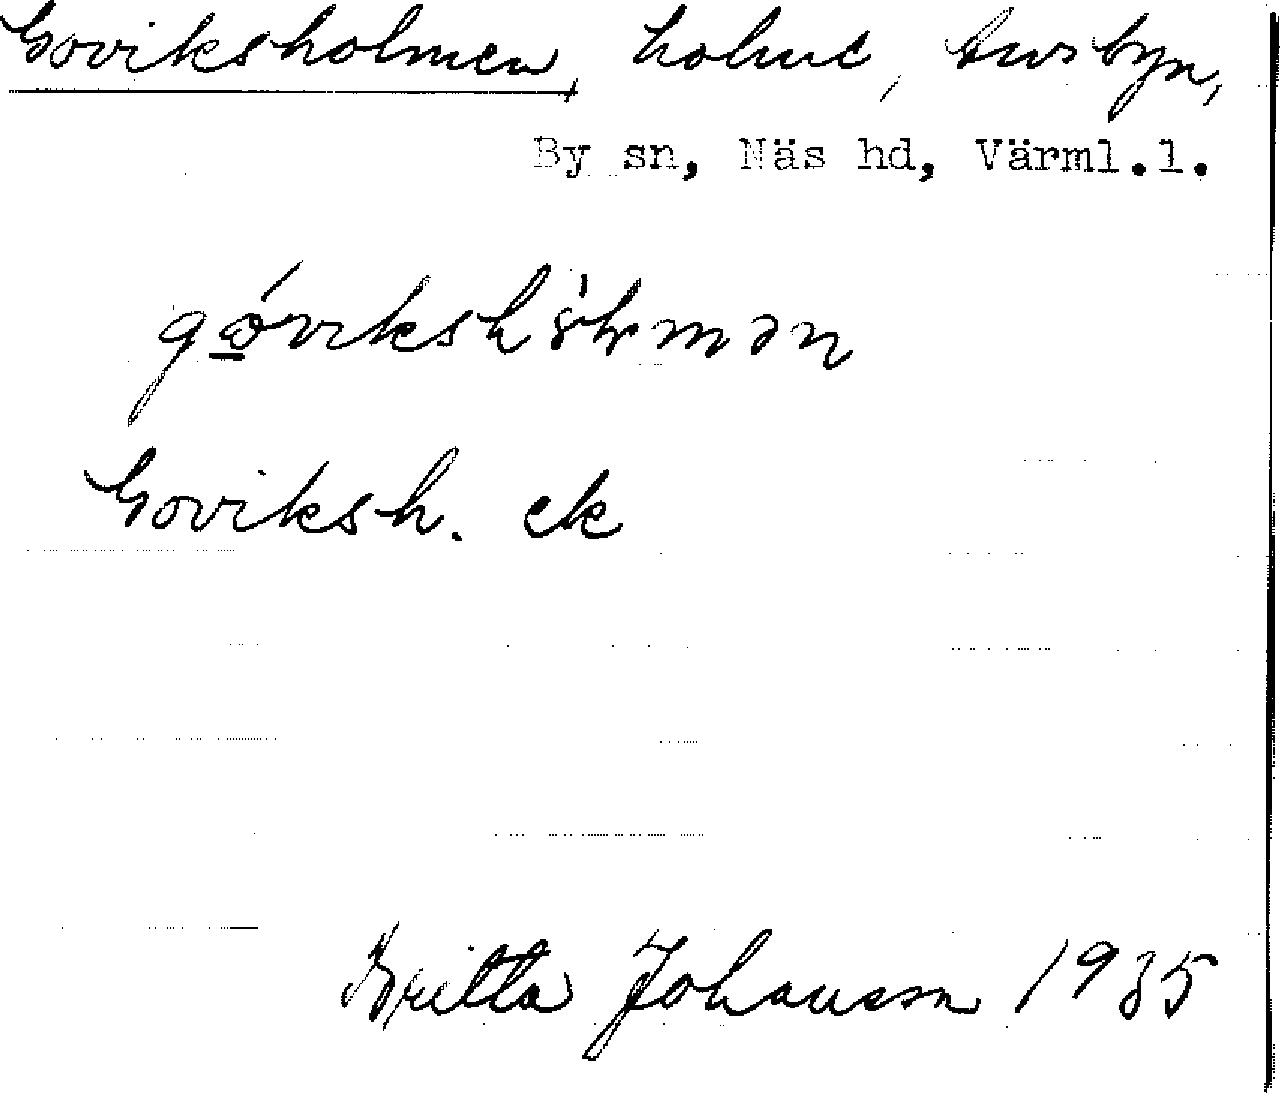 Goviksholmen, holme, Åsbyn,
By sn, Näs hd, Värml.l.
Goviksh. ek
Britta Johansson 1935